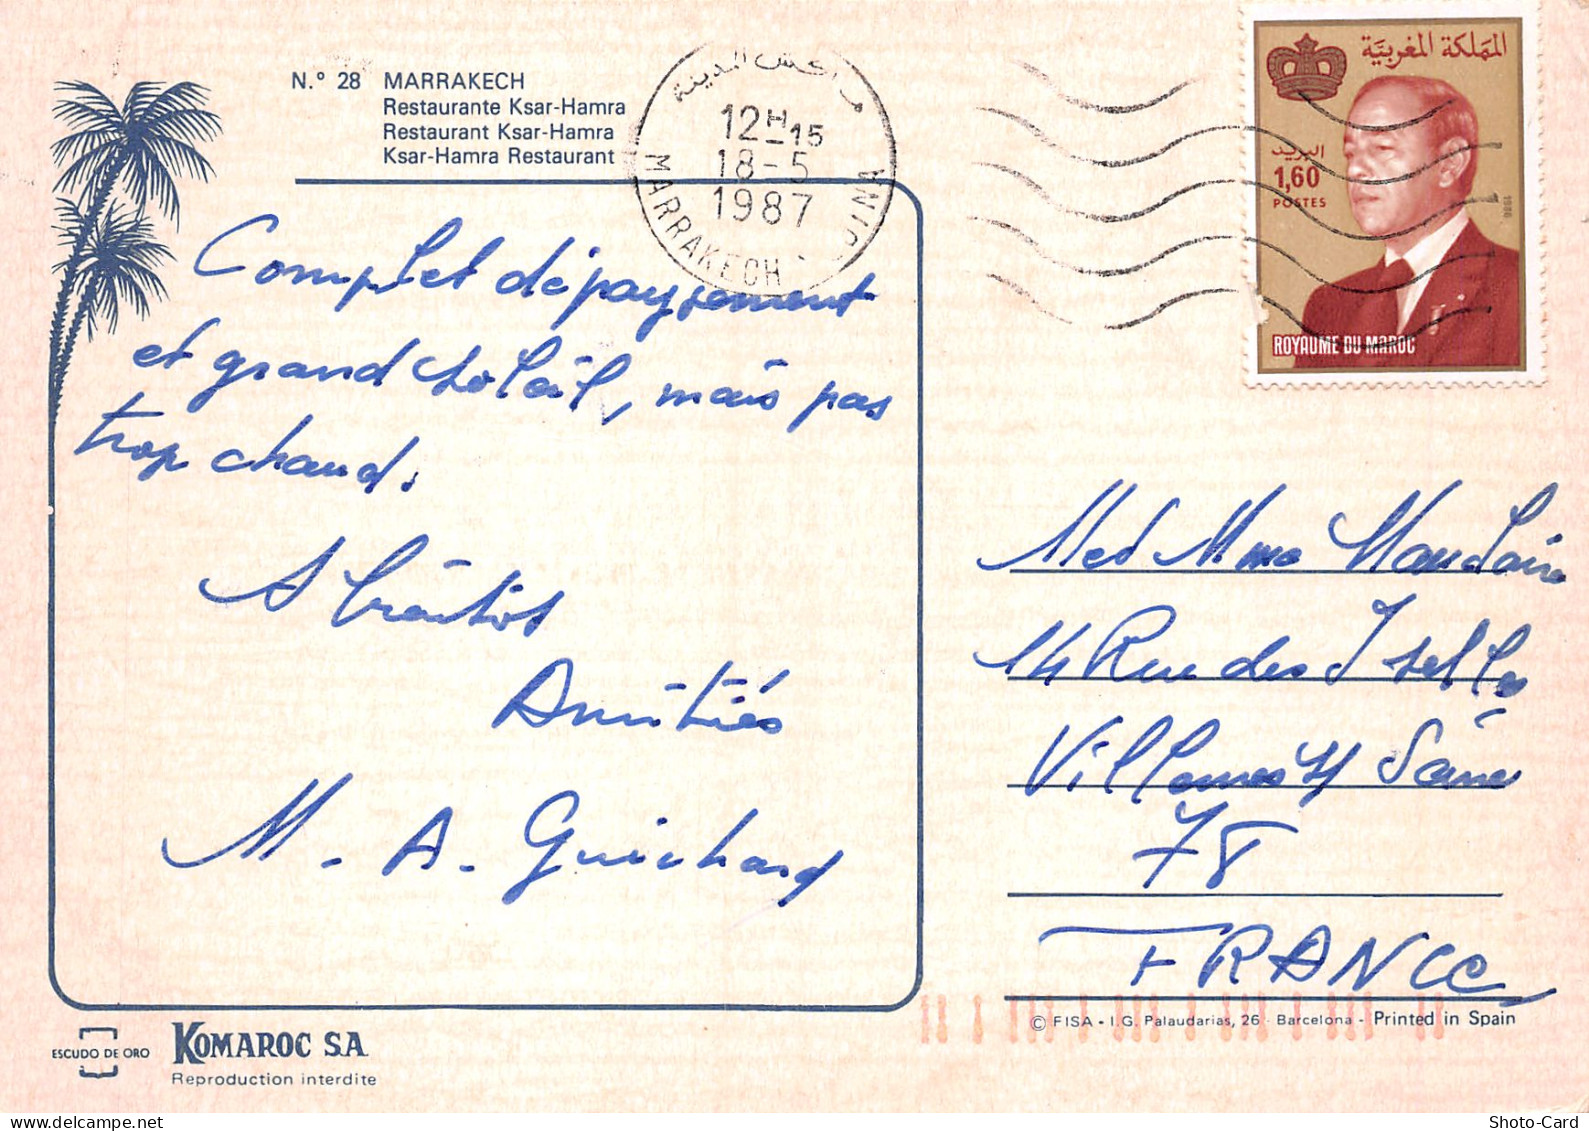 N.° 28 MARRAKECH
Restaurante Ksar-Hamra
Restaurant Ksar-Hamra
Ksar-Hamra Restaurant
12H-15
18-5
1987
MARRAKECH
المملكة المغربية
البريد
1,60
POSTES
1986
ROYAUME DU MAROC
Complet dépaysement
et grand soleil, mais pas
trop chaud.
A bientôt
Amitiés
M. A. Guichard
M et Mme
14 Rue des
78
FRANCE
ESCUDO DE ORO
KOMAROC S.A.
Reproduction interdite
© FISA - I.G. Palaudarias, 26 - Barcelona - Printed in Spain
Shoto-Card
www.delcampe.net